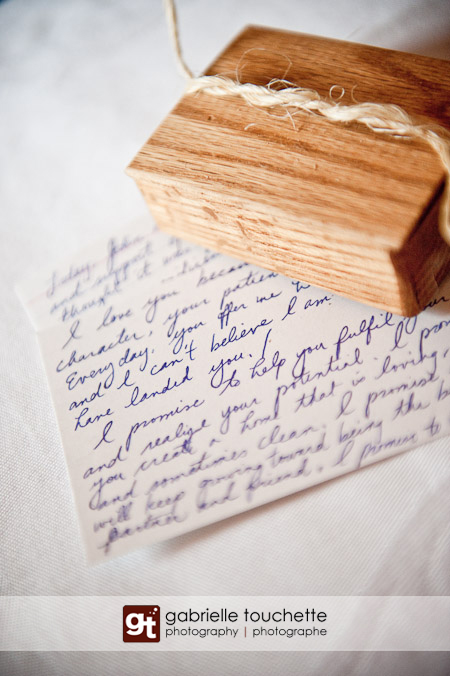 Today, John
and support
thought it
I love you beca
character, your patien
Everyday, you offer me
and I can't believe I am
have landed you!
I promise to help you fulfil your
and realize your potential. I prom
you create a home that is loving,
and sometimes clean. I promise
will keep moving toward being the b
partner and friend. I promise to
gt gabrielle touchette
photography | photographe